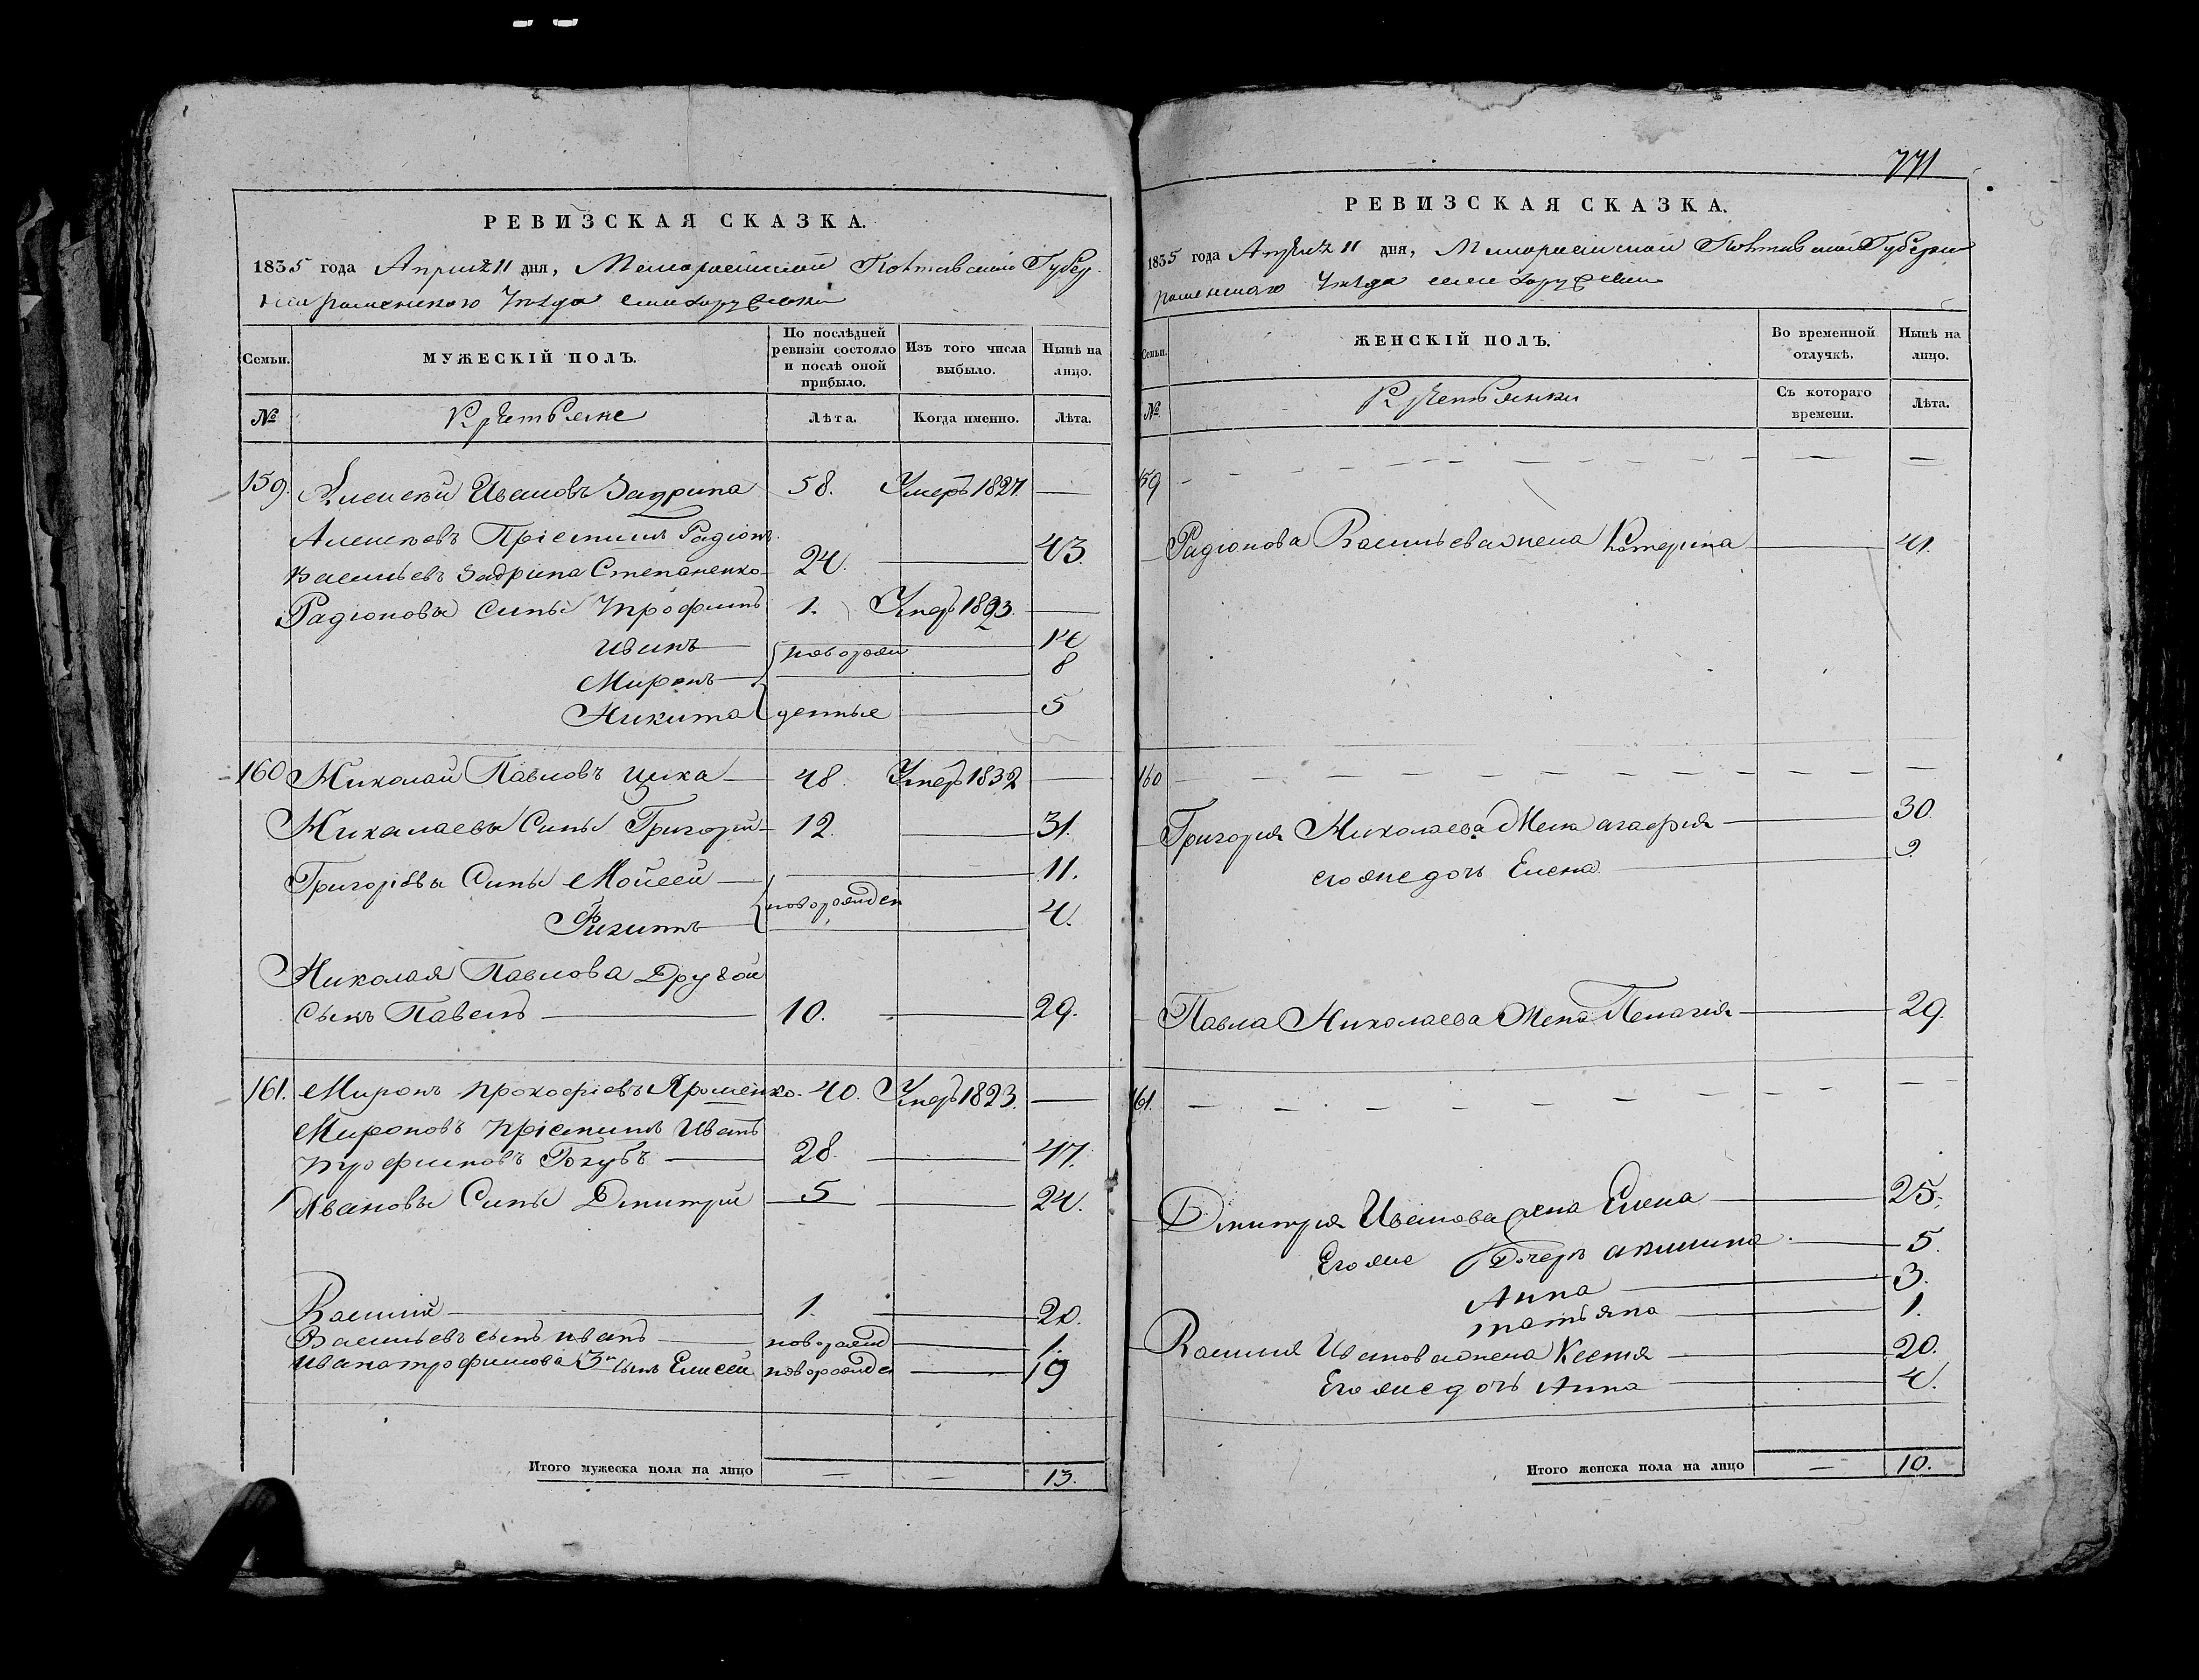 РЕВИЗСКАЯ СКАЗКА.
1835 года Апреля 11 дня, Малороссійской Полтавской Губер
Роменского Уезда
Семьи.
МУЖЕСКІЙ ПОЛЪ.
По послѣдней ревизіи состояло и послѣ оной прибыло.
Изъ того числа выбыло.
Нынѣ на лицо.
№
Крестьяне
Лѣта.
Когда именно.
Лѣта.
159. Алексѣй Ивановъ Задрипа 58. Умеръ 1827. —
Алексѣевъ Пріемышъ Радіонъ
Васильевъ Задрипа Степаненко 24. — 43.
Радіоновы Сины Трофимъ 1. Умеръ 1823. —
Иванъ — новорож — 14
Миронъ — — 8
Никита денные — 5
160 Николай Павловъ Цика — 48. Умеръ 1832 —
Николаевы Сины Григорій 12. — 31.
Григорієвы Сины Мойсей — — 11.
Филипъ новорожден — 4.
Николая Павлова Другой
Сынъ Павелъ — 10. — 29.
161. Миронъ Прокофіевъ Яроменко 40. Умеръ 1823. —
Мироновъ Пріемышъ Иванъ
Трофимовъ Голубъ — 28. — 47.
Ивановы Сины Дмитрій 5 — 24.
Василій — 1. — 20.
Васильевъ сынъ Иванъ — новорожд — 1.
Ивана Трофимова 3й сынъ Елисей новорожден — 19
Итого мужеска пола на лицо — — 13.
771
РЕВИЗСКАЯ СКАЗКА.
1835 года Апреля 11 дня, Малороссійской Полтавской Губерни
Роменского Уезда
Семьи.
ЖЕНСКІЙ ПОЛЪ.
Во временной отлучкѣ.
Нынѣ на лицо.
№
Крестьянки
Съ котораго времени.
Лѣта.
159
Радіонова Васильева жена Катерина — 41.
160
Григорія Николаева Жена Агафія — 30
его же дочь Елена — 9.
Павла Николаева Жена Пелагія — 29.
161.
Дмитрія Иванова жена Елена — 25.
Его же Дочери Акилина — 5.
Анна — 3.
Татьяна — 1.
Василія Иванова жена Ксенія — 20.
Его же дочь Анна — 4.
Итого женска пола на лицо — 10.